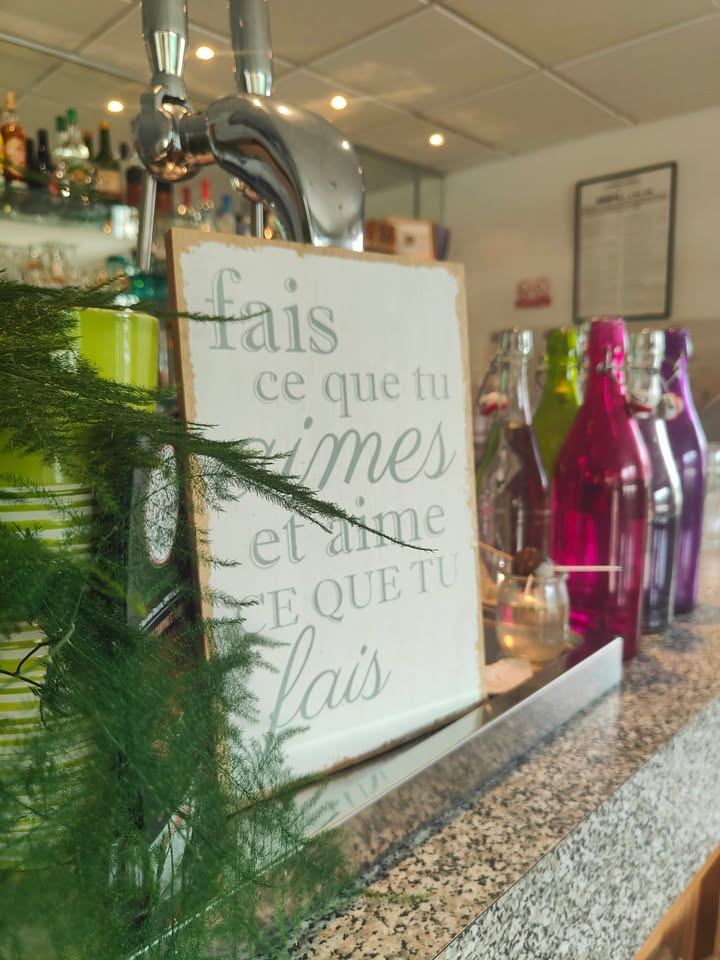 fais
ce que tu
aimes
et aime
CE QUE TU
fais